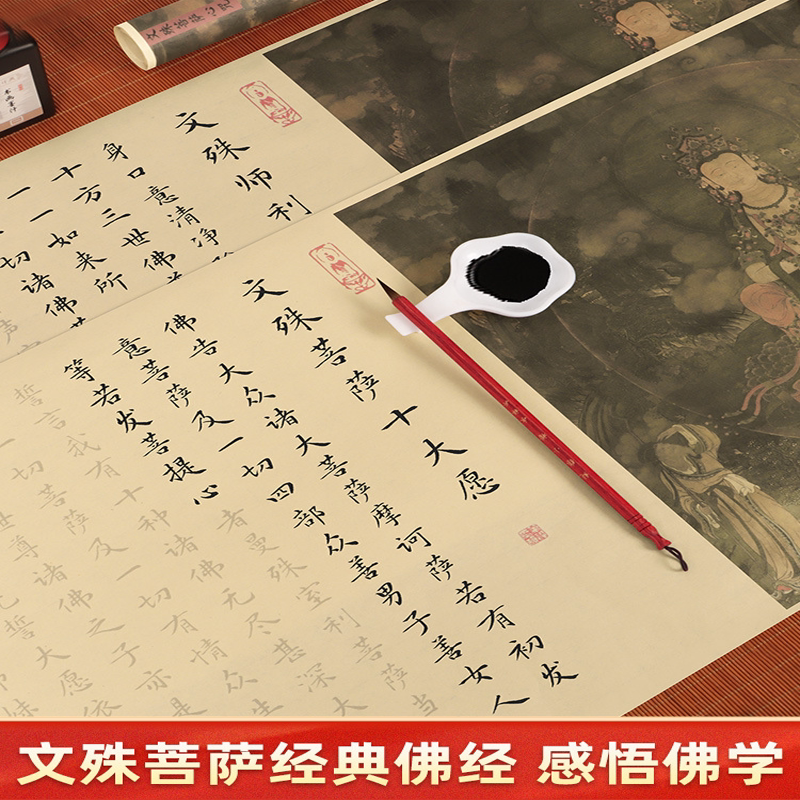 文殊师利
身口意清净
十方三世佛
一一如来所
切诸佛
文殊菩萨十大愿
佛告大众诸大菩萨摩诃萨若有初发
意菩萨及一切四部众善男子善女人
等若发菩提心者曼殊室利菩萨当
誓言我有十种诸佛无尽甚深大
一切菩萨及一切有情众生
世尊诸佛之子亦是
誓大愿依
文殊菩萨经典佛经 感悟佛学